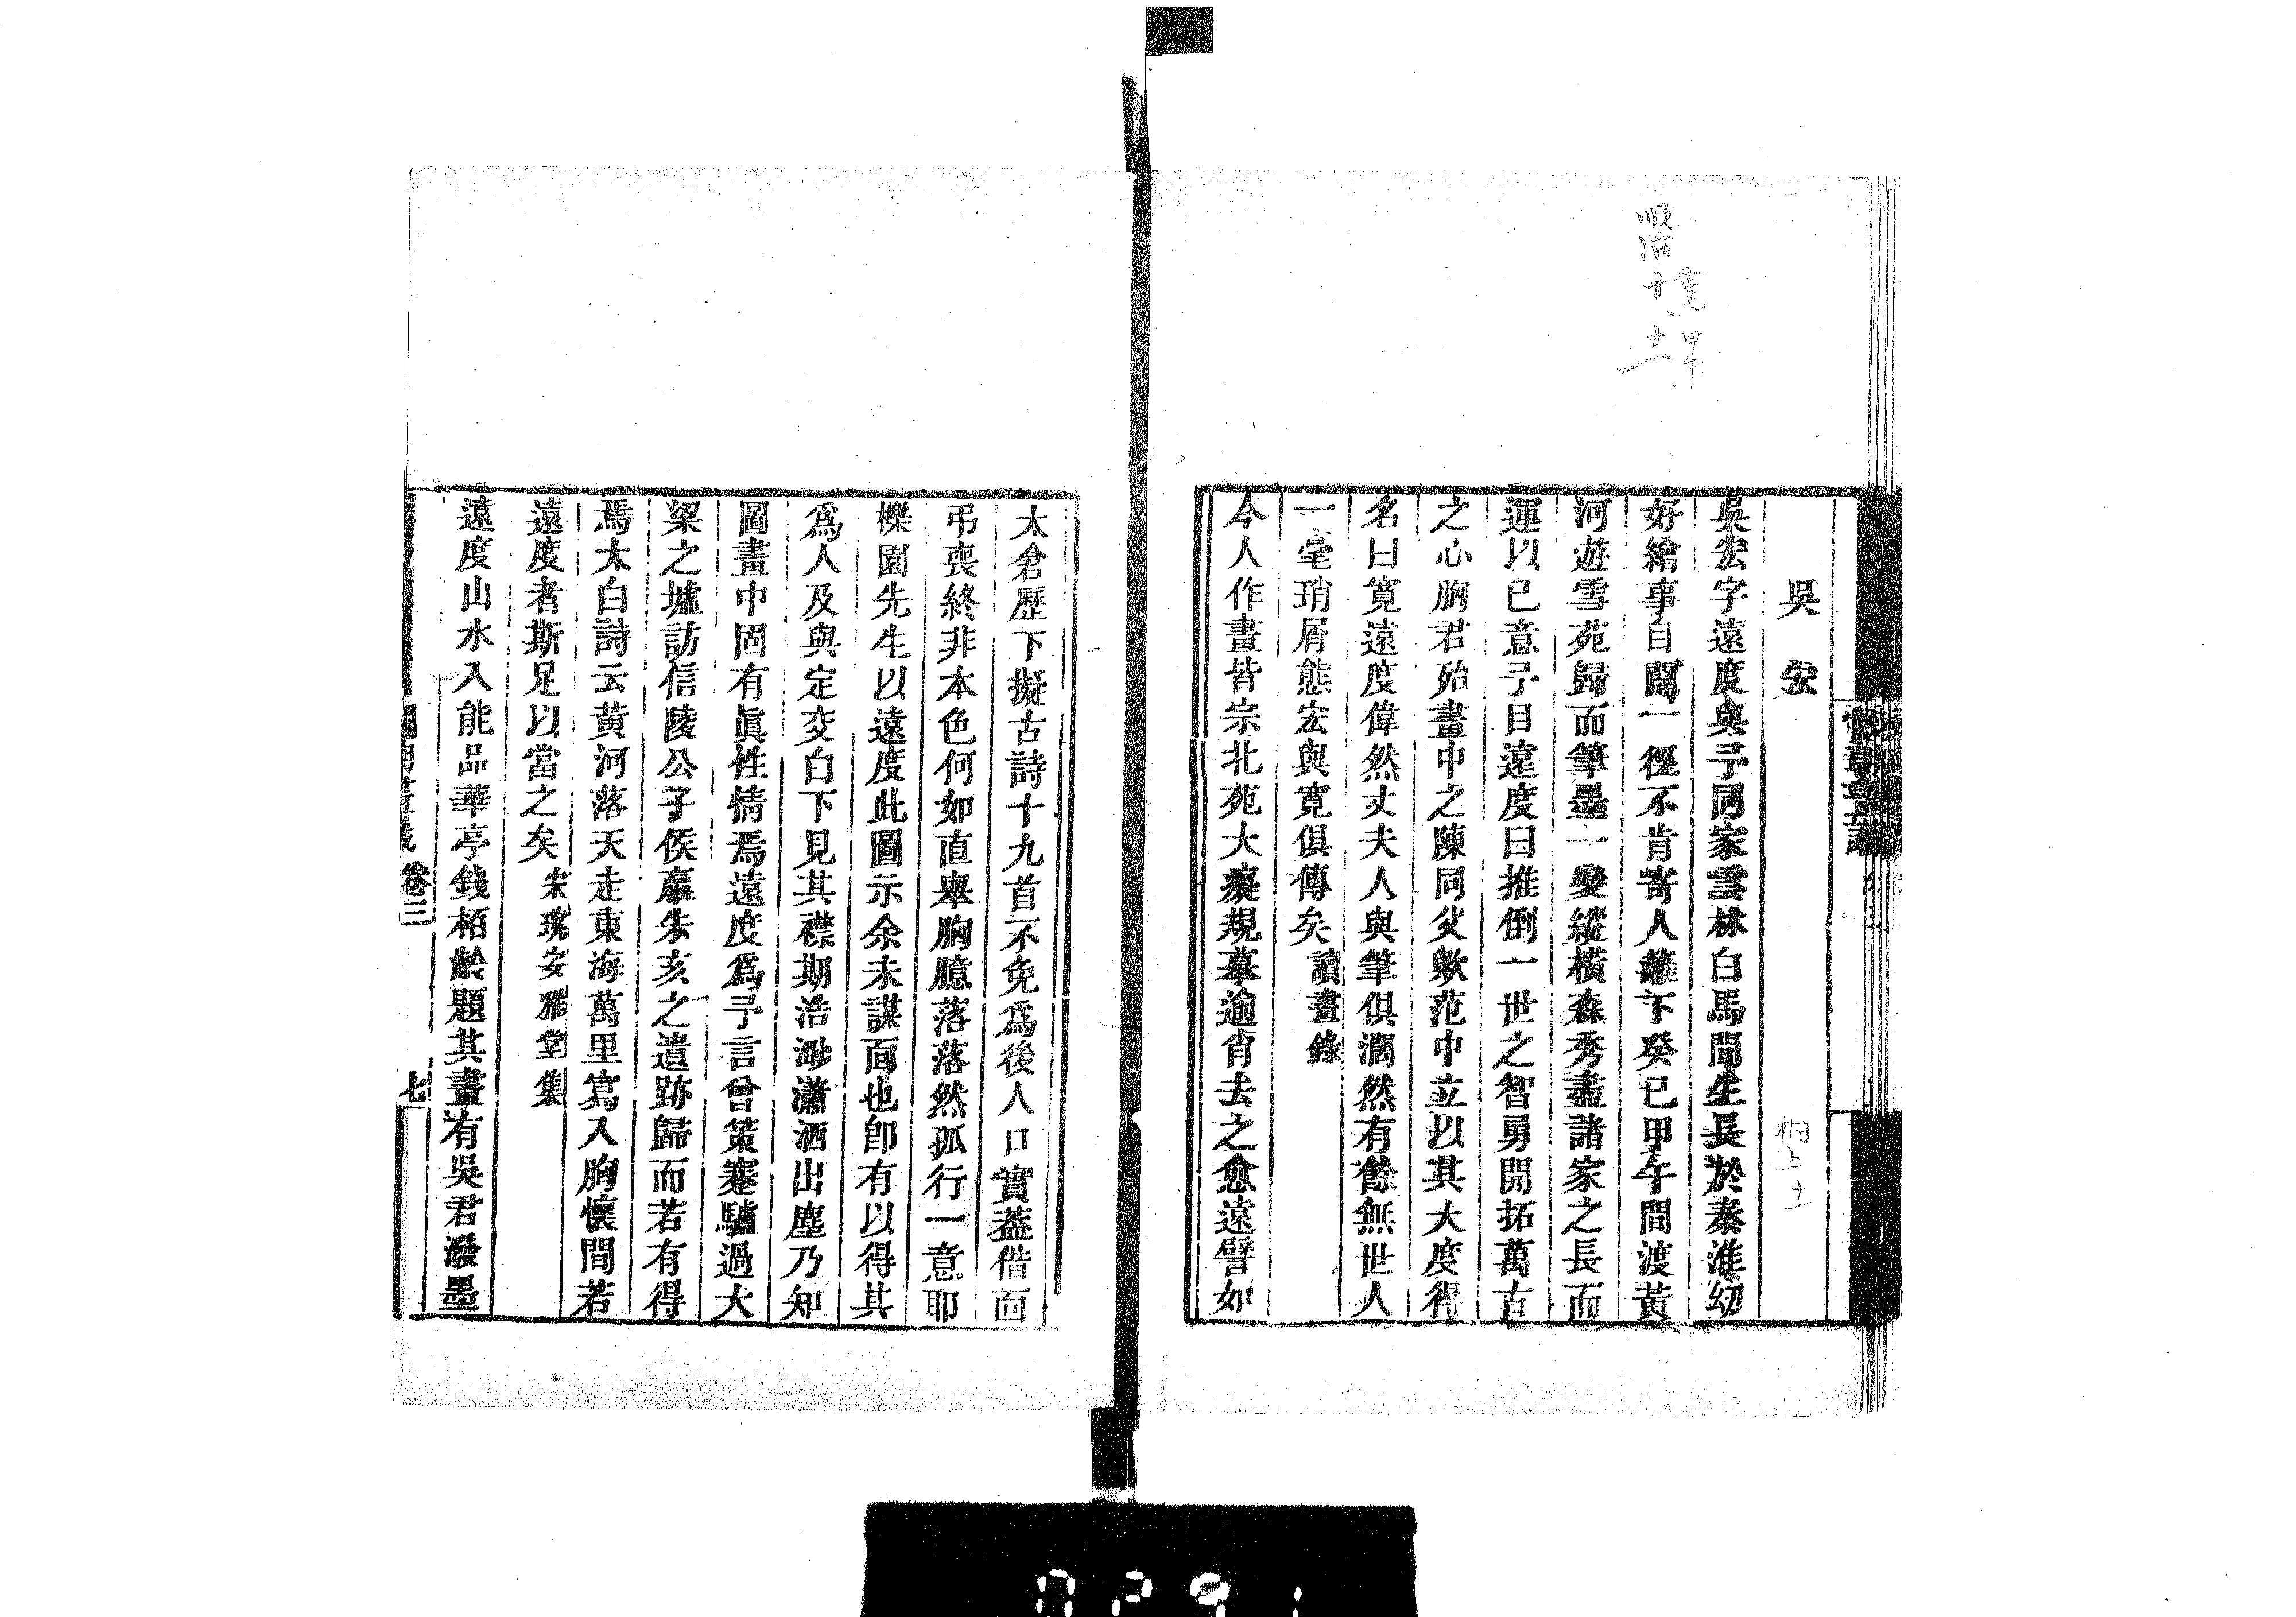 順治十
甲午
吳宏
吳宏字遠度與予同家雲林白馬間生長於秦淮幼
好繪事自闢一徑不肯寄人籬下癸巳甲午間渡黃
河遊雪苑歸而筆墨一變縱橫森秀盡諸家之長而
運以已意予目遠度曰推倒一世之智勇開拓萬古
之心胸君殆畫中之陳同父歟范中立以其大度得
名曰寬遠度偉然丈夫人與筆俱濶然有餘無世人
一毫瑣屑態宏與寬俱傳矣讀畫錄
今人作畫皆宗北苑大癡規摹逾肖去之愈遠譬如
太倉歷下擬古詩十九首不免爲後人口實葢借面
弔喪終非本色何如直舉胸臆落落然孤行一意耶
櫟園先生以遠度此圖示余未謀面也卽有以得其
爲人及與定交白下見其襟期浩渺瀟洒出塵乃知
圖畫中固有眞性情焉遠度爲予言曾策蹇驢過大
梁之墟訪信陵公子侯嬴朱亥之遺跡歸而若有得
焉太白詩云黃河落天走東海萬里寫入胸懷間若
遠度者斯足以當之矣宋琬安雅堂集
遠度山水入能品華亭錢栢齡題其畫有吳君潑墨
卷三
七
0291